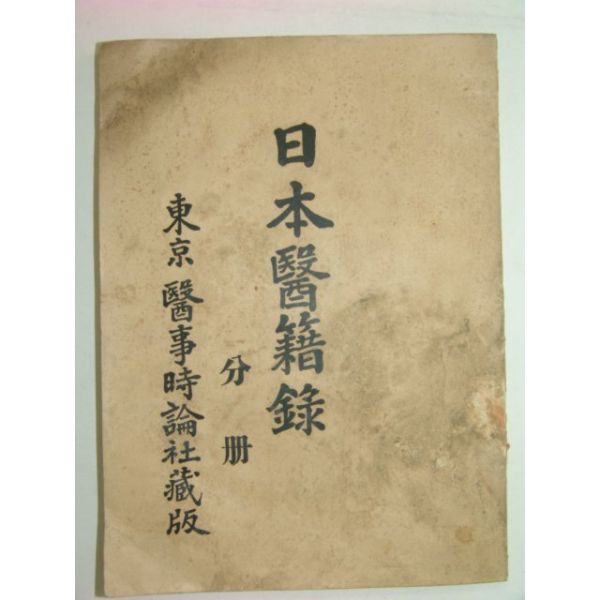 日本醫籍錄
分册
東京 醫事時論社藏版